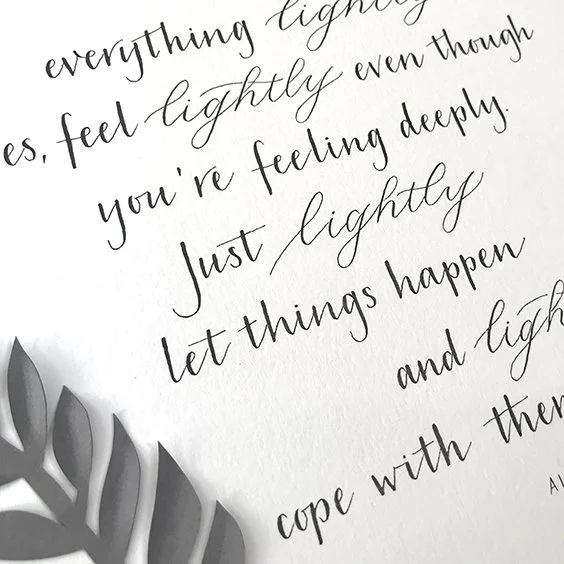 everything lightly
es, feel lightly even though
you're feeling deeply.
Just lightly
let things happen
and ligh
cope with them